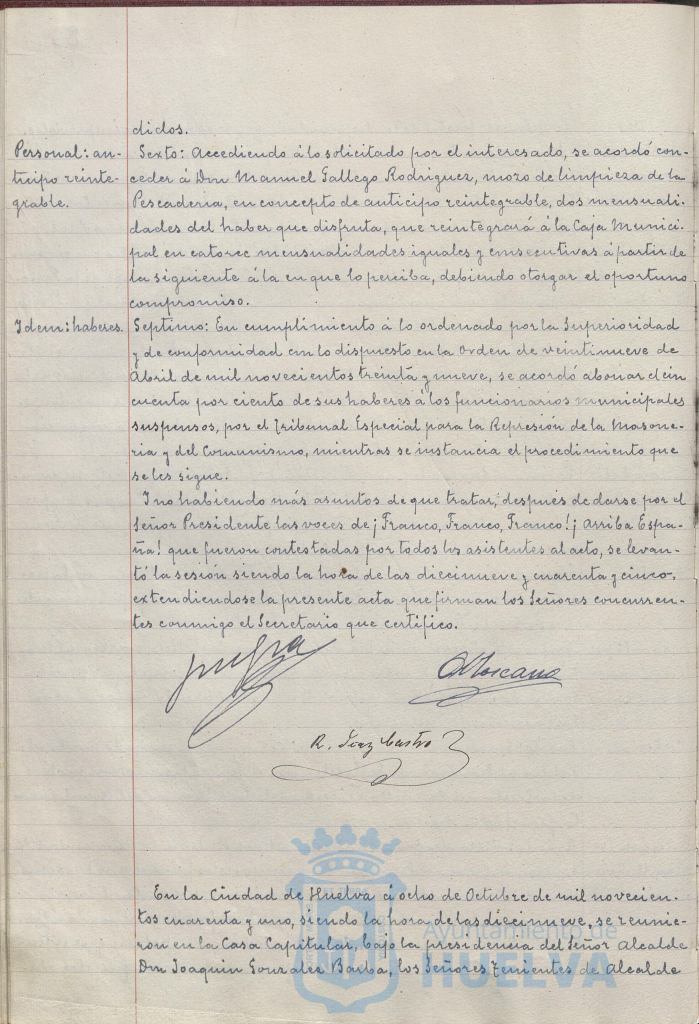 didos.
Personal: an-
ticipo reinte-
grable.
Sexto: Accediendo á lo solicitado por el interesado, se acordó con-
ceder á Don Manuel Gallego Rodriguez, mozo de limpieza de la
Pescaderia, en concepto de anticipo reintegrable, dos mensuali-
dades del haber que disfruta, que reintegrará á la Caja Munici-
pal en catorce mensualidades iguales y consecutivas á partir de
la siguiente á la en que lo perciba, debiendo otorgar el oportuno
compromiso.
Idem: haberes.
Septimo: En cumplimiento á lo ordenado por la Superioridad
y de conformidad con lo dispuesto en la Orden de veintinueve de
Abril de mil novecientos treinta y nueve, se acordó abonar el cin
cuenta por ciento de sus haberes á los funcionarios municipales
suspensos, por el Tribunal Especial para la Represión de la Masone-
ria y del Comunismo, mientras se instancia el procedimiento que
se les sigue.
I no habiendo más asuntos de que tratar, después de darse por el
Señor Presidente las voces de ¡Franco, Franco, Franco! ¡Arriba Espa-
ña! que fueron contestadas por todos los asistentes al acto, se levan-
tó la sesión siendo la hora de las diecinueve y cuarenta y cinco,
extendiendose la presente acta que firman los Señores concurren-
tes conmigo el Secretario que certifico.
R. Diaz Castro
En la Ciudad de Huelva á ocho de Octubre de mil novecien-
tos cuarenta y uno, siendo la hora de las diecinueve, se reunie-
ron en la Casa Capitular, bajo la presidencia del Señor Alcalde
Don Joaquin Gonzalez Barba, los Señores Tenientes de Alcalde
Ayuntamiento de
HUELVA